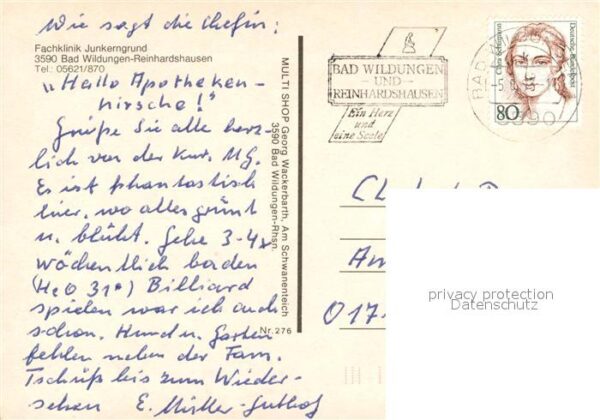 Wie sagt die Chefin:
Fachklinik Junkerngrund
3590 Bad Wildungen-Reinhardshausen
Tel.: 05621/870
„Hallo Apotheken-
kirsche!"
Grüße Sie alle herz-
lich von der Kur. Mg.
Es ist phantastisch
hier, wo alles grünt
u. blüht. Gehe 3-4x
wöchentlich baden
(H2O 31°) Billiard
spielen war ich auch
schon. Hund u. Garten
fehlen neben der Fam.
Tschüß bis zum Wieder-
sehen E. Müller-
MULTI SHOP Georg Wackerbarth, Am Schwanenteich
3590 Bad Wildungen-Rhsn.
Nr. 276
BAD WILDUNGEN
-UND-
REINHARDSHAUSEN
Ein Herz
und
eine Seele
BAD WILDUN
-5.
3590
Clara Schumann
Deutsche Bundespost
80
Am
O17
privacy protection
Datenschutz